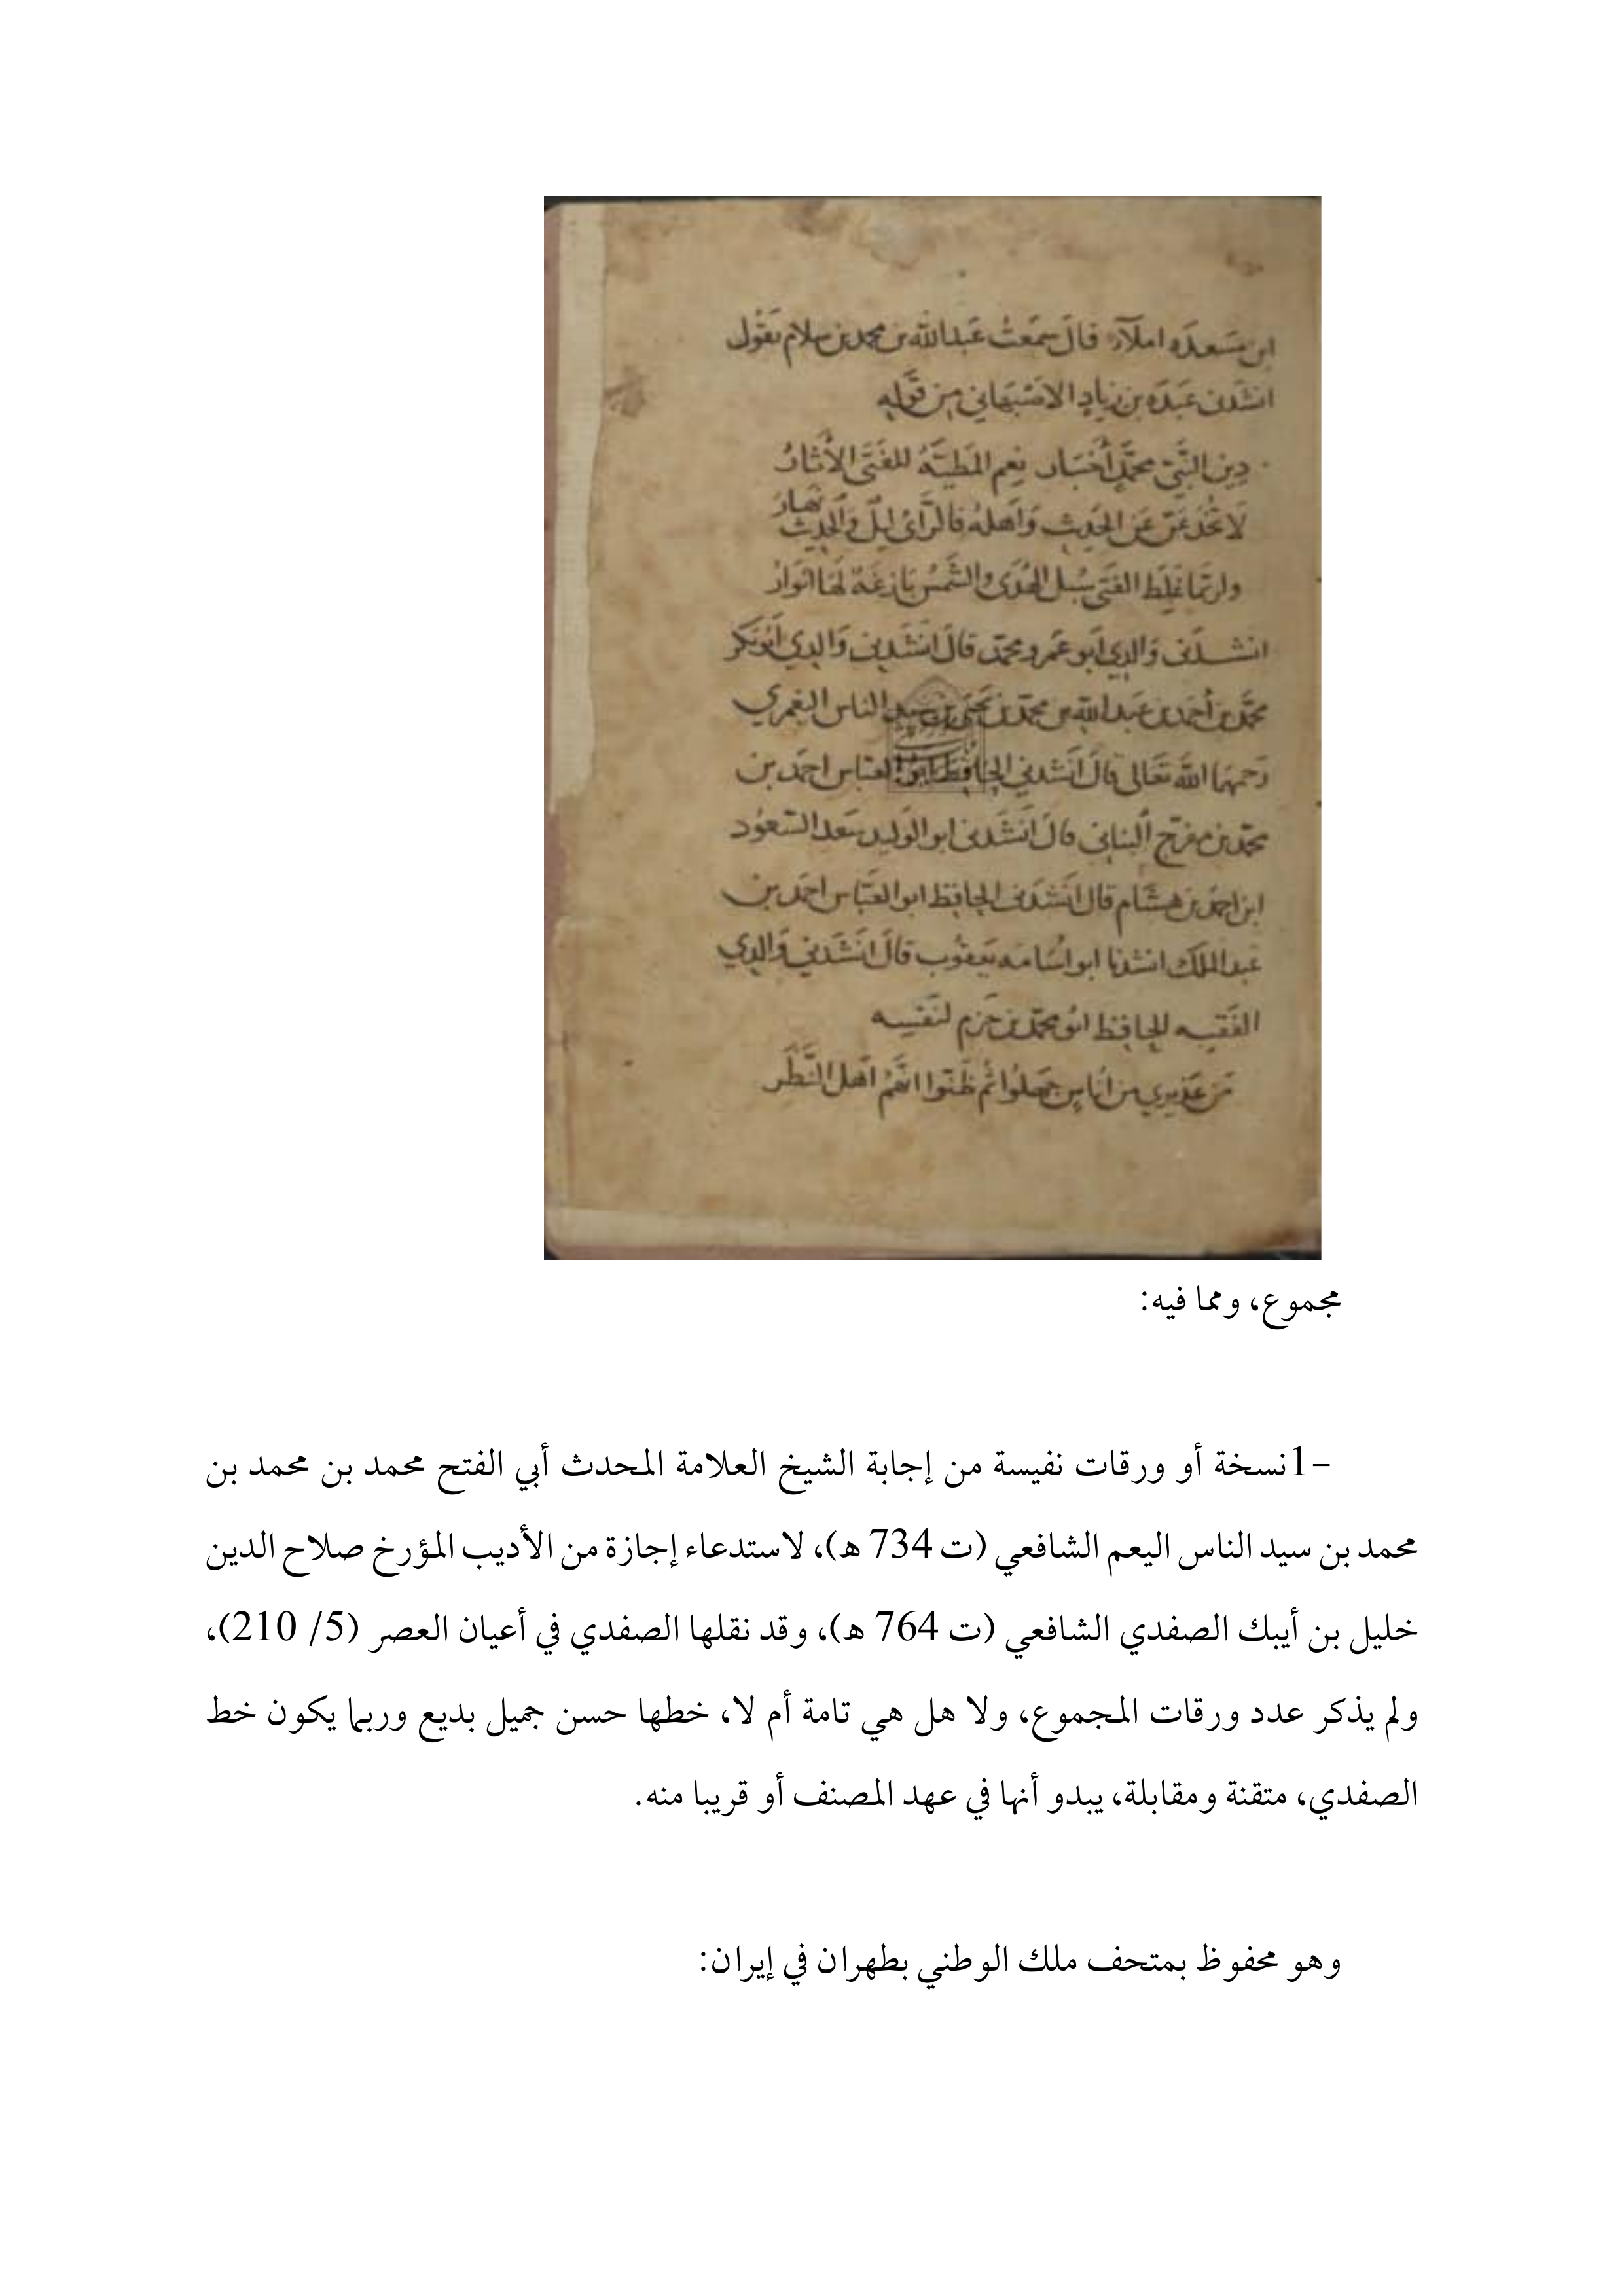 ابن مسعدة املاء قال سمعت عبد الله بن محمد بن سلام يقول
انشدني عبدة بن زياد الاصبهاني من قوله
دين النبي محمد أخبار نعم المطية للفتى الآثار
لا تخدعن عن الحديث وأهله فالرأي ليل والحديث نهار
ولربما غلط الفتى سبل الهدى والشمس بازغة لها انوار
انشدني والدي ابو عمرو محمد قال انشدني والدي أبو بكر
محمد بن أحمد بن عبد الله بن محمد بن يحيى بن سيد الناس اليعمري
رحمهما الله تعالى قال انشدني الحافظ ابو العباس احمد بن
محمد بن مفرج قال انشدني ابو الوليد سعد السعود
ابن احمد بن هشام قال انشدني الحافظ ابو العباس احمد بن
عبد الملك انشدنا ابو اسامة يعقوب قال انشدني والدي
الفقيه الحافظ ابو محمد بن حزم لنفسه
من عذيري من اناس جهلوا ثم ظنوا انهم اهل النظر
مجموع، ومما فيه:
-1نسخة أو ورقات نفيسة من إجابة الشيخ العلامة المحدث أبي الفتح محمد بن محمد بن
محمد بن سيد الناس اليعم الشافعي (ت 734 ه)، لاستدعاء إجازة من الأديب المؤرخ صلاح الدين
خليل بن أيبك الصفدي الشافعي (ت 764 ه)، وقد نقلها الصفدي في أعيان العصر (5/ 210)،
ولم يذكر عدد ورقات المجموع، ولا هل هي تامة أم لا، خطها حسن جميل بديع وربما يكون خط
الصفدي، متقنة ومقابلة، يبدو أنها في عهد المصنف أو قريبا منه.
وهو محفوظ بمتحف ملك الوطني بطهران في إيران: